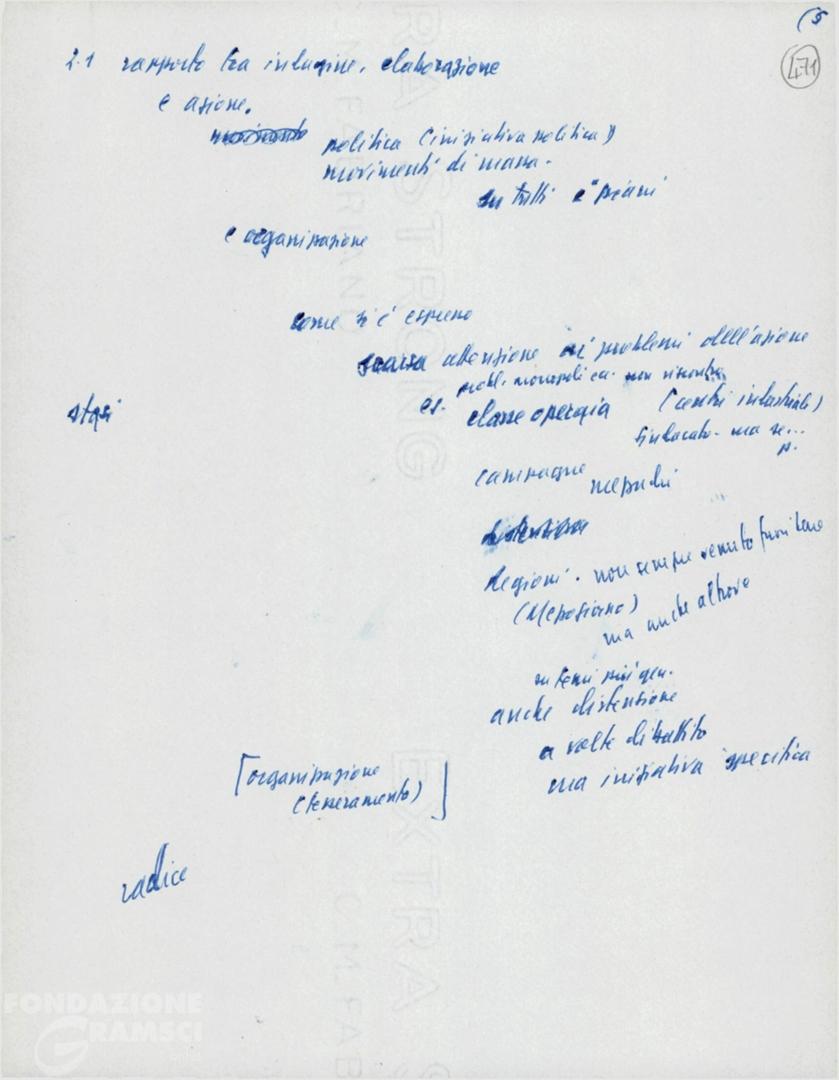 (5
471
2.1 rapporto tra indagine, elaborazione
e azione.
movimento politica (iniziativa politica)
movimenti di massa.
su tutti i piani
e organizzazione
come si è espresso
scarsa attenzione ai problemi dell'azione
probl. monopoli ca. non riscontra
es. classe operaia (centri industriali)
stasi
sindacato. ma se...
p.
campagne
mezzadri
distensione
Regioni. non sempre venuto fuori bene
(Mezzogiorno)
ma anche altrove
su temi più gen.
anche distensione
a volte dibattito
ma iniziativa specifica
[organizzazione
(tesseramento)]
radice
EXTRA STRONG
C.M. FABRIANO
EXTRA S
C.M. FAB
FONDAZIONE
GRAMSCI